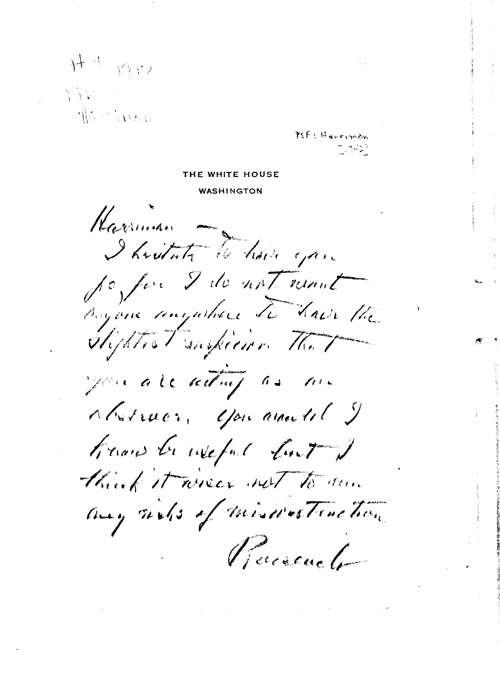 1942
Harriman
PSF: Harriman
THE WHITE HOUSE
WASHINGTON
Harriman —
I hesitate to have you
go, for I do not want
anyone anywhere to have the
slightest suspicion that
you are acting as an
observer. You would I
know be useful but I
think it wiser not to run
any risks of misconstruction
Roosevelt